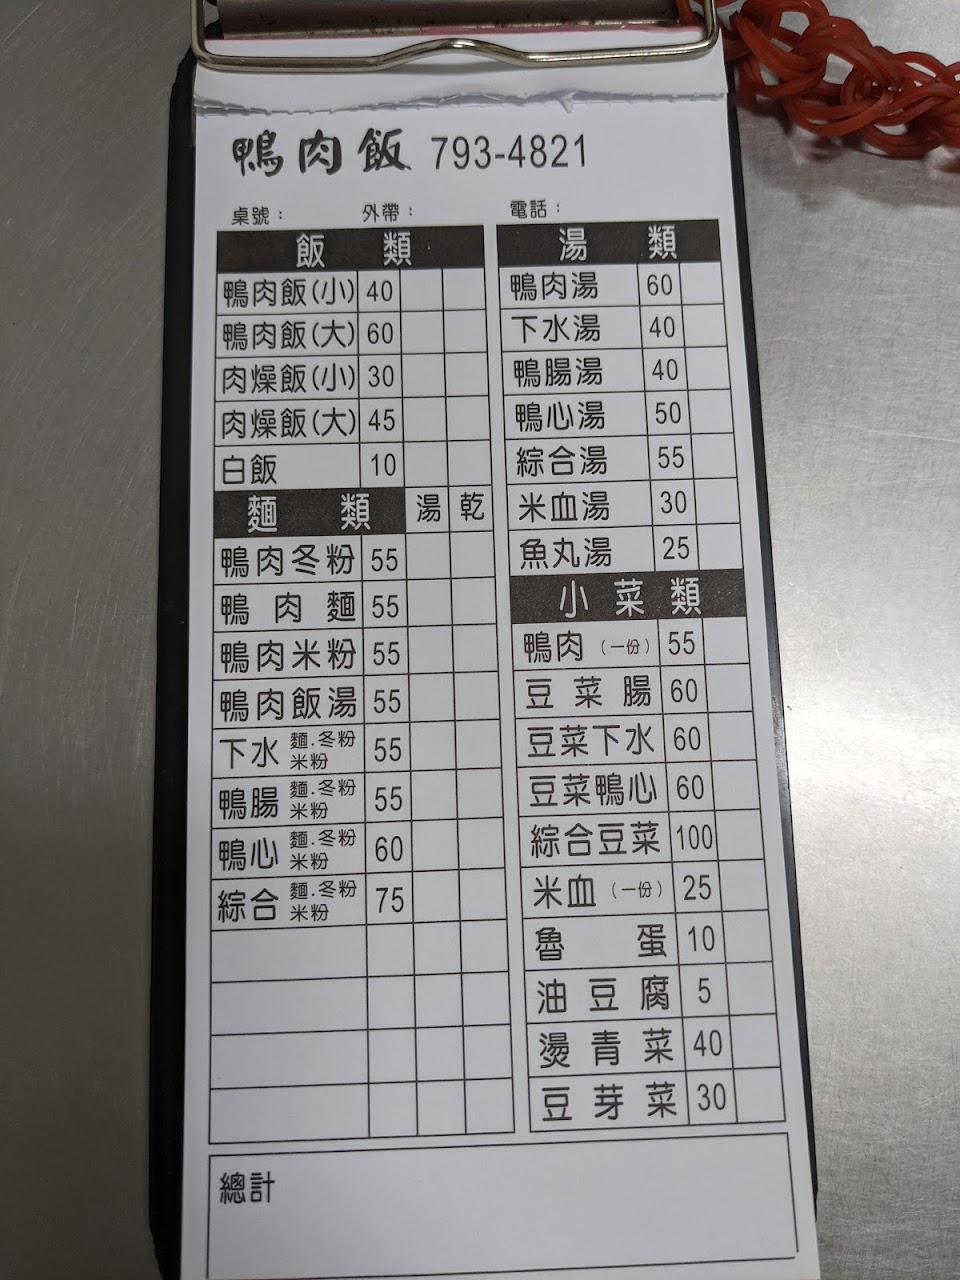 鴨肉飯 793-4821
桌號： 外帶： 電話：
飯 類
鴨肉飯(小) 40
鴨肉飯(大) 60
肉燥飯(小) 30
肉燥飯(大) 45
白飯 10
麵 類 湯 乾
鴨肉冬粉 55
鴨肉麵 55
鴨肉米粉 55
鴨肉飯湯 55
下水 麵.冬粉 米粉 55
鴨腸 麵.冬粉 米粉 55
鴨心 麵.冬粉 米粉 60
綜合 麵.冬粉 米粉 75
湯 類
鴨肉湯 60
下水湯 40
鴨腸湯 40
鴨心湯 50
綜合湯 55
米血湯 30
魚丸湯 25
小菜類
鴨肉（一份） 55
豆菜腸 60
豆菜下水 60
豆菜鴨心 60
綜合豆菜 100
米血（一份） 25
魯蛋 10
油豆腐 5
燙青菜 40
豆芽菜 30
總計